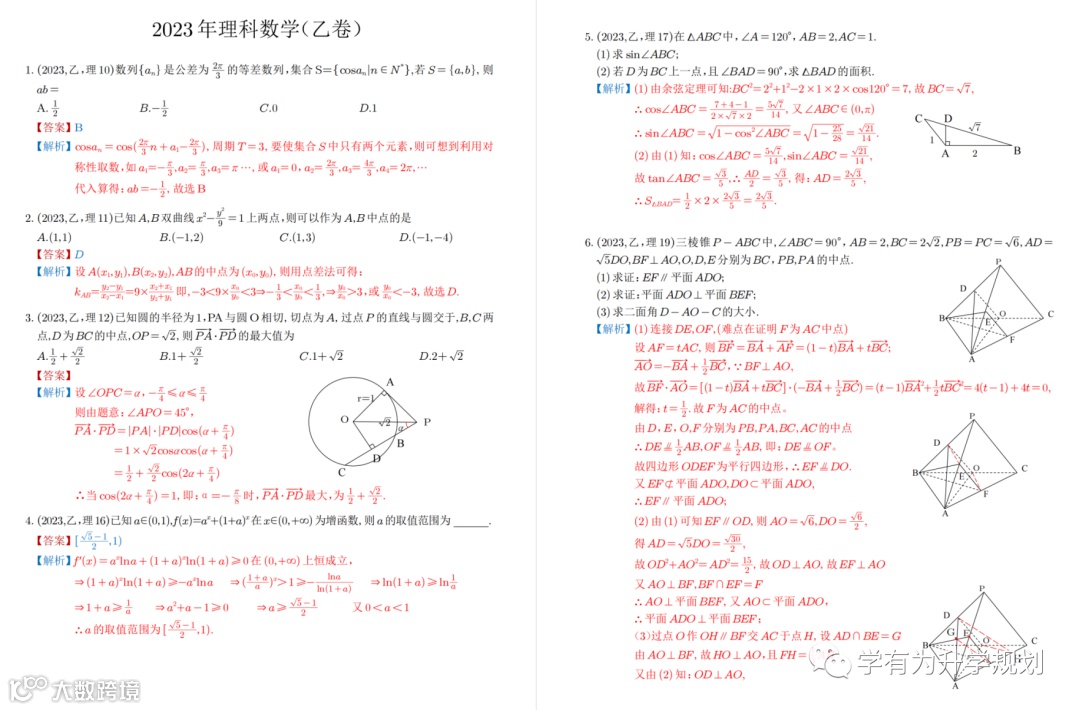 2023年理科数学(乙卷)
1. (2023,乙,理10)数列{aₙ}是公差为 2π/3 的等差数列,集合S={cosaₙ|n∈N*},若S={a,b},则
ab=
A. 1/2 B.-1/2 C.0 D.1
【答案】B
【解析】cosaₙ=cos(2π/3 n+a₁-2π/3), 周期T=3, 要使集合S中只有两个元素,则可想到利用对
称性取数,如a₁=-π/3,a₂=π/3,a₃=π⋯, 或a₁=0,a₂=2π/3,a₃=4π/3,a₄=2π,⋯
代入算得:ab=-1/2, 故选B
2. (2023,乙,理11)已知A,B双曲线x²-y²/9=1上两点,则可以作为A,B中点的是
A.(1,1) B.(-1,2) C.(1,3) D.(-1,-4)
【答案】D
【解析】设A(x₁,y₁),B(x₂,y₂),AB的中点为(x₀,y₀), 则用点差法可得:
k_AB=(y₂-y₁)/(x₂-x₁)=9×(x₂+x₁)/(y₂+y₁) 即,-3<9×x₀/y₀<3⇒-1/3<x₀/y₀<1/3,⇒y₀/x₀>3,或y₀/x₀<-3, 故选D.
3. (2023,乙,理12)已知圆的半径为1,PA与圆O相切, 切点为A, 过点P的直线与圆交于,B,C两
点,D为BC的中点,OP=√2, 则PA·PD的最大值为
A. 1/2+√2/2 B.1+√2/2 C.1+√2 D.2+√2
【答案】
【解析】设∠OPC=α,-π/4⩽α⩽π/4
则由题意:∠APO=45°,
PA·PD=|PA|·|PD|cos(α+π/4)
=1×√2cosαcos(α+π/4)
=1/2+√2/2cos(2α+π/4)
∴当cos(2α+π/4)=1, 即:α=-π/8时,PA·PD最大,为1/2+√2/2.
A
r=1
O
√2
α
P
B
D
C
4. (2023,乙,理16)已知a∈(0,1),f(x)=aˣ+(1+a)ˣ在x∈(0,+∞)为增函数, 则a的取值范围为______.
【答案】[(√5-1)/2,1)
【解析】f'(x)=aˣlna+(1+a)ˣln(1+a)⩾0在(0,+∞)上恒成立,
⇒(1+a)ˣln(1+a)⩾-aˣlna ⇒((1+a)/a)ˣ>1⩾-lna/ln(1+a) ⇒ln(1+a)⩾ln1/a
⇒1+a⩾1/a ⇒a²+a-1⩾0 ⇒a⩾(√5-1)/2 又0<a<1
∴a的取值范围为[(√5-1)/2,1).
5. (2023,乙,理17)在△ABC中,∠A=120°, AB=2,AC=1.
(1)求sin∠ABC;
(2)若D为BC上一点,且∠BAD=90°,求△BAD的面积.
【解析】(1)由余弦定理可知:BC²=2²+1²-2×1×2×cos120°=7, 故BC=√7,
∴cos∠ABC=(7+4-1)/(2×√7×2)=5√7/14, 又∠ABC∈(0,π)
∴sin∠ABC=√(1-cos²∠ABC)=√(1-25/28)=√21/14.
(2)由(1)知:cos∠ABC=5√7/14,sin∠ABC=√21/14,
故tan∠ABC=√3/5,∴AD/2=√3/5, 得:AD=2√3/5,
∴S△BAD=1/2×2×2√3/5=2√3/5.
C
D
√7
1
A
2
B
6. (2023,乙,理19)三棱锥P-ABC中,∠ABC=90°, AB=2,BC=2√2,PB=PC=√6,AD=
√5DO,BF⊥AO,O,D,E分别为BC, PB,PA的中点.
(1)求证:EF∥平面ADO;
(2)求证:平面ADO⊥平面BEF;
(3)求二面角D-AO-C的大小.
【解析】(1)连接DE,OF,(难点在证明F为AC中点)
设AF=tAC, 则BF=BA+AF=(1-t)BA+tBC;
AO=-BA+1/2BC,∵BF⊥AO,
故BF·AO=[(1-t)BA+tBC]·(-BA+1/2BC)=(t-1)BA²+1/2tBC²=4(t-1)+4t=0,
解得:t=1/2. 故F为AC的中点。
由D,E,O,F分别为PB,PA,BC,AC的中点
∴DE⫽1/2AB,OF⫽1/2AB, 即:DE⫽OF。
故四边形ODEF为平行四边形,∴EF⫽DO.
又EF⊄平面ADO,DO⊂平面ADO,
∴EF∥平面ADO;
(2)由(1)可知EF∥OD, 则AO=√6,DO=√6/2,
得AD=√5DO=√30/2,
故OD²+AO²=AD²=15/2, 故OD⊥AO, 故EF⊥AO
又AO⊥BF,BF∩EF=F
∴AO⊥平面BEF, 又AO⊂平面ADO,
∴平面ADO⊥平面BEF;
(3)过点O作OH∥BF交AC于点H, 设AD∩BE=G
由AO⊥BF, 故HO⊥AO, 且FH=
又由(2)知:OD⊥AO,
P
D
B
O
C
E
F
A
P
D
B
O
C
E
F
A
P
D
G
E
B
O
C
H
A
学有为升学规划
大数跨境